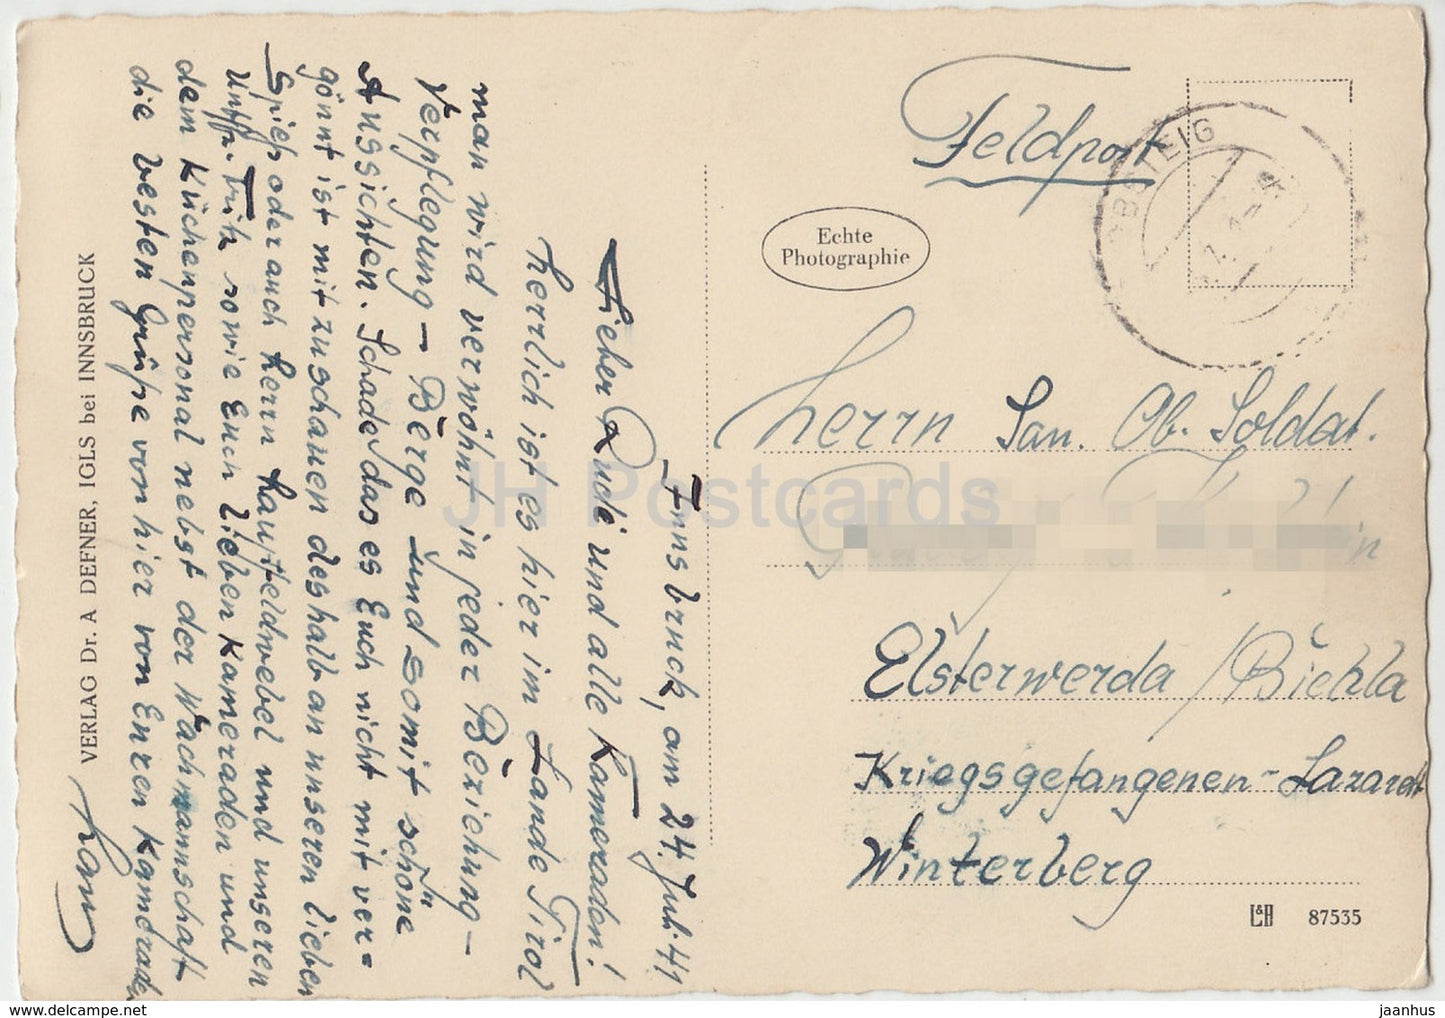 Innsbruck, am 24. Juli 41
Lieber Rudi und alle Kameraden!
Herrlich ist es hier im Lande Tirol
man wird verwöhnt in jeder Beziehung –
Verpflegung – Berge und somit schöne
Aussichten. Schade das es Euch nicht mit ver=
gönnt ist mit zuschauen deshalb an unseren lieben
Spieß oder auch Herrn Hauptfeldwebel und unseren
Uffz. Fritz sowie Euch lieben Kameraden und
dem Küchenpersonal nebst der Wachmannschaft
die besten Grüße von hier von Euren Kameraden
Hans
VERLAG Dr. A DEFNER, IGLS bei INNSBRUCK
Feldpost
OBSTEIG
Echte
Photographie
Herrn San. Ob. Soldat.
Elsterwerda / Biehla
Kriegsgefangenen-Lazarett
Winterberg
L&B 87535
JH Postcards
www.hippostcard.com
jaanhus